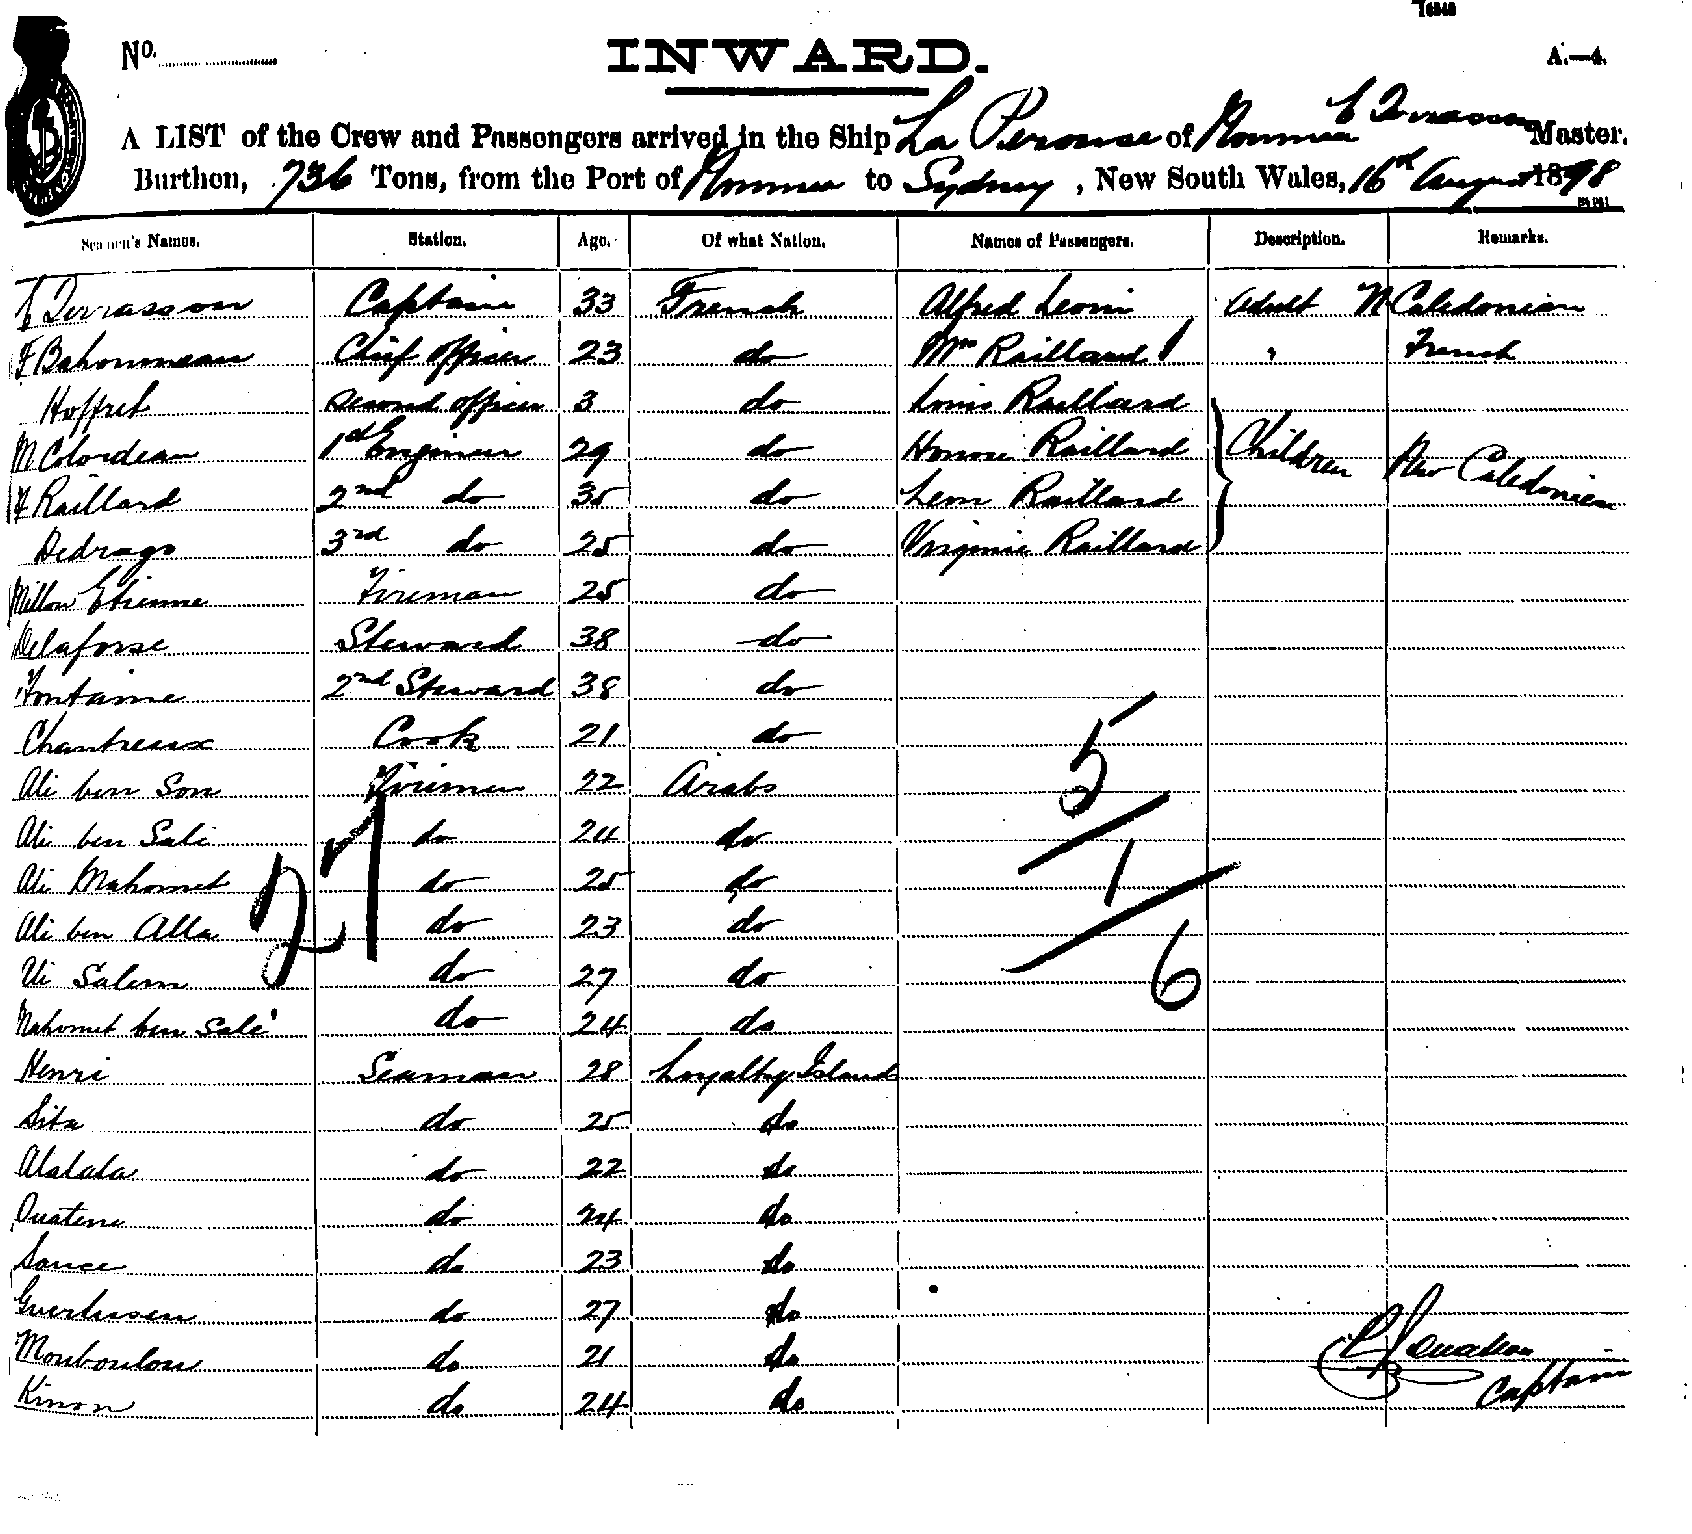 No.
INWARD.
A.—4.
A LIST of the Crew and Passengers arrived in the Ship La Perouse of Noumea E Terrasson Master.
Burthen, 736 Tons, from the Port of Noumea to Sydney, New South Wales, 16th August 1898
Seamen's Names. Station. Age. Of what Nation. Names of Passengers. Description. Remarks.
E Terrasson Captain 33 French Alfred Leoni Adult N Caledonian
F Bahonneau Chief officer 23 do Mrs Raillard " French
Hoffret second officer 3 do Louis Raillard
M Colordeau 1st Engineer 29 do Honore Raillard Children New Caledonien
H Raillard 2nd do 35 do Leon Raillard
Dedrago 3rd do 25 do Virginie Raillard
Millon Etienne Fireman 25 do
Delaforse Steward 38 do
Fontaine 2nd Steward 38 do
Chantreux Cook 21 do
Ali ben Son Firemen 22 Arabs
Ali ben Sali do 24 do
Ali Mahomet do 25 do
Ali ben Alla do 23 do
Ali Salem do 27 do
Mahomet ben Sali do 24 do
27
5
1
6
Henri Seaman 28 Loyalty Island
Sita do 25 do
Alalala do 22 do
Ouatene do 24 do
Sauce do 23 do
do 27 do
Mouboulou do 21 do
Kinon do 24 do
Captain